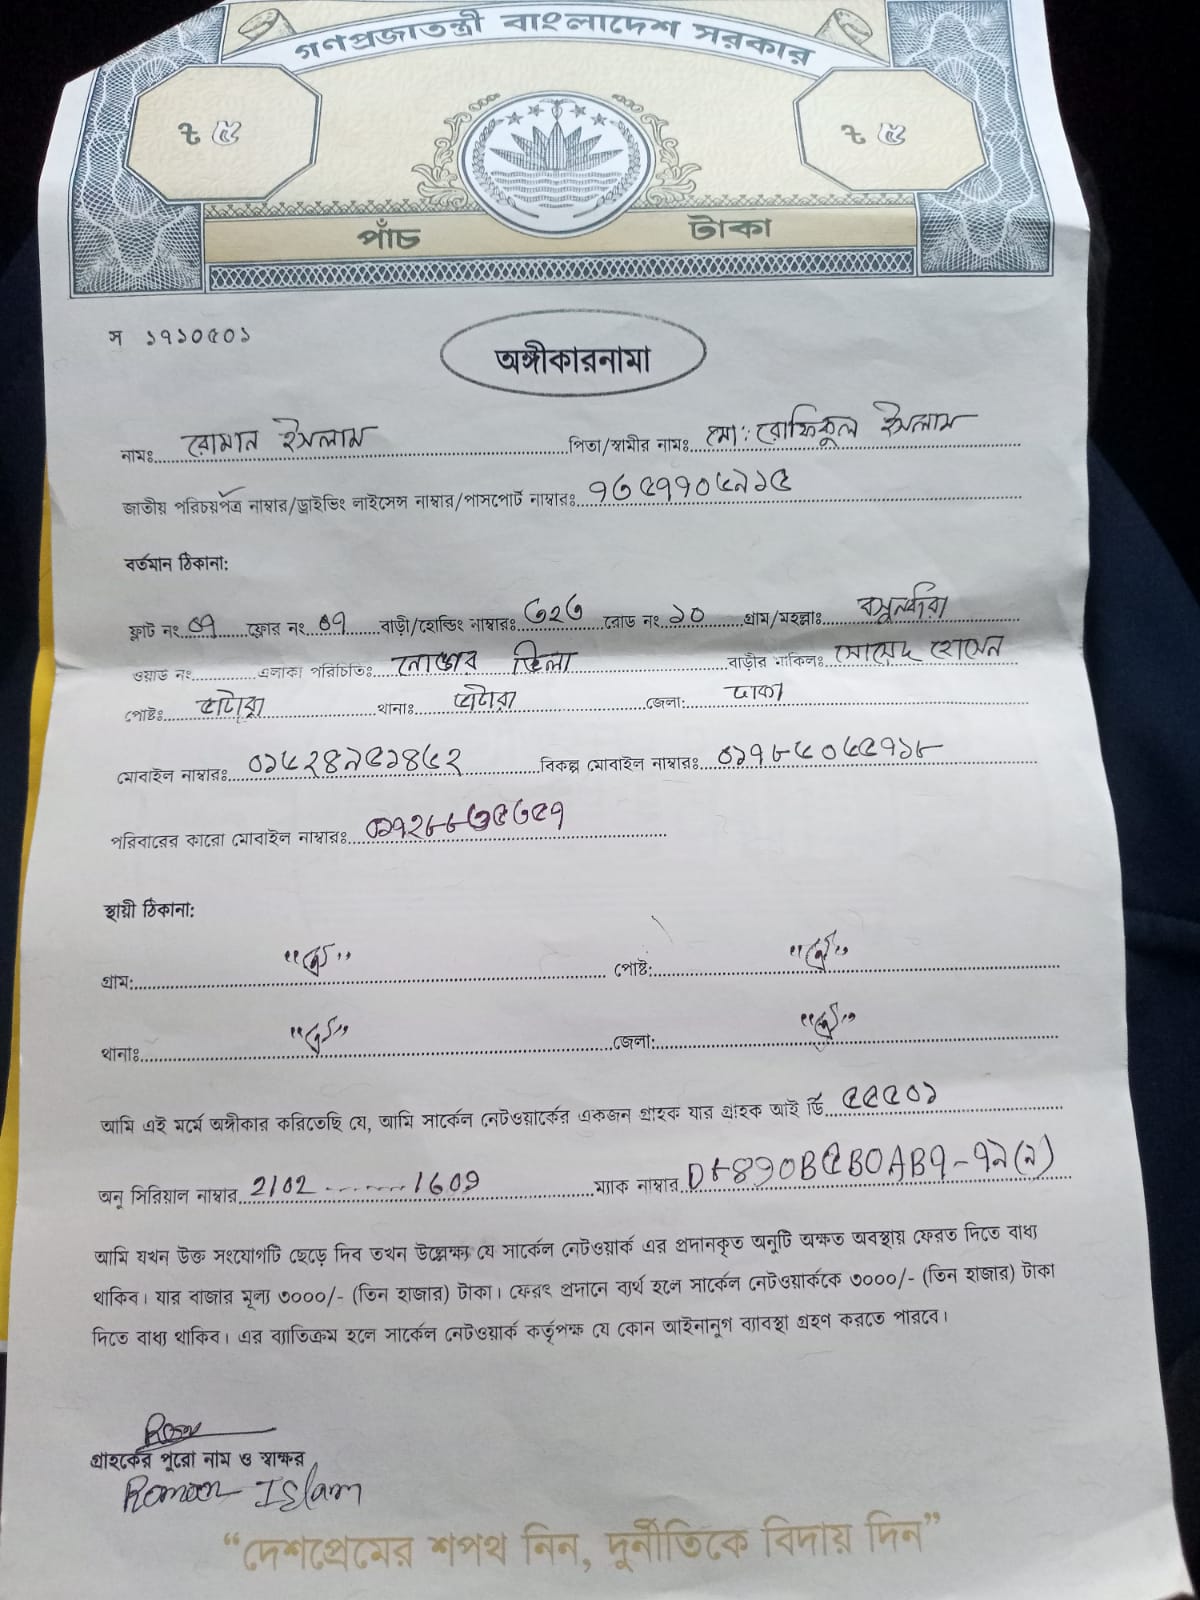 গণপ্রজাতন্ত্রী বাংলাদেশ সরকার
৳ ৫ ৳ ৫
পাঁচ টাকা
স ১৭১০৫০১
অঙ্গীকারনামা
নামঃ রোমান ইসলাম পিতা/স্বামীর নামঃ মো: রোফিকুল ইসলাম
জাতীয় পরিচয়পত্র নাম্বার/ড্রাইভিং লাইসেন্স নাম্বার/পাসপোর্ট নাম্বারঃ
বর্তমান ঠিকানা:
ফ্লাট নং ০৭ ফ্লোর নং ০৭ বাড়ী/হোল্ডিং নাম্বারঃ ৩২৩ রোড নং ১০ গ্রাম/মহল্লাঃ
ওয়ার্ড নং এলাকা পরিচিতিঃ ভিলা বাড়ীর মালিকঃ হোসেন
পোষ্টঃ থানাঃ জেলা: ঢাকা
মোবাইল নাম্বারঃ বিকল্প মোবাইল নাম্বারঃ
পরিবারের কারো মোবাইল নাম্বারঃ
স্থায়ী ঠিকানা:
গ্রাম: পোষ্ট:
থানাঃ জেলা:
আমি এই মর্মে অঙ্গীকার করিতেছি যে, আমি সার্কেল নেটওয়ার্কের একজন গ্রাহক যার গ্রাহক আই ডি ৫৫৫০১
অনু সিরিয়াল নাম্বার 2102 ------- 1609 ম্যাক নাম্বার
আমি যখন উক্ত সংযোগটি ছেড়ে দিব তখন উল্লেক্ষ্য যে সার্কেল নেটওয়ার্ক এর প্রদানকৃত অনুটি অক্ষত অবস্থায় ফেরত দিতে বাধ্য
থাকিব। যার বাজার মূল্য ৩০০০/- (তিন হাজার) টাকা। ফেরৎ প্রদানে ব্যর্থ হলে সার্কেল নেটওয়ার্ককে ৩০০০/- (তিন হাজার) টাকা
দিতে বাধ্য থাকিব। এর ব্যাতিক্রম হলে সার্কেল নেটওয়ার্ক কর্তৃপক্ষ যে কোন আইনানুগ ব্যাবস্থা গ্রহণ করতে পারবে।
গ্রাহকের পুরো নাম ও স্বাক্ষর
Roman Islam
“দেশপ্রেমের শপথ নিন, দুর্নীতিকে বিদায় দিন”